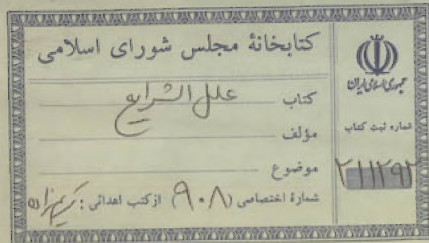 کتابخانهٔ مجلس شورای اسلامی
کتاب علل الشرایع
مؤلف
موضوع
شمارهٔ اختصاصی (۹۰۸) از کتب اهدائی:
جمهوری اسلامی ایران
شماره ثبت کتاب
۲۱۱۲۹۲